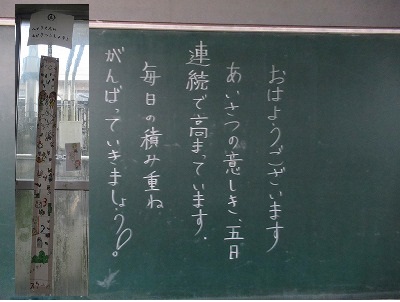 おはようございます
あいさつの意しき、五日
連続で高まっています.
毎日の積み重ね
がんばっていきましょう!。